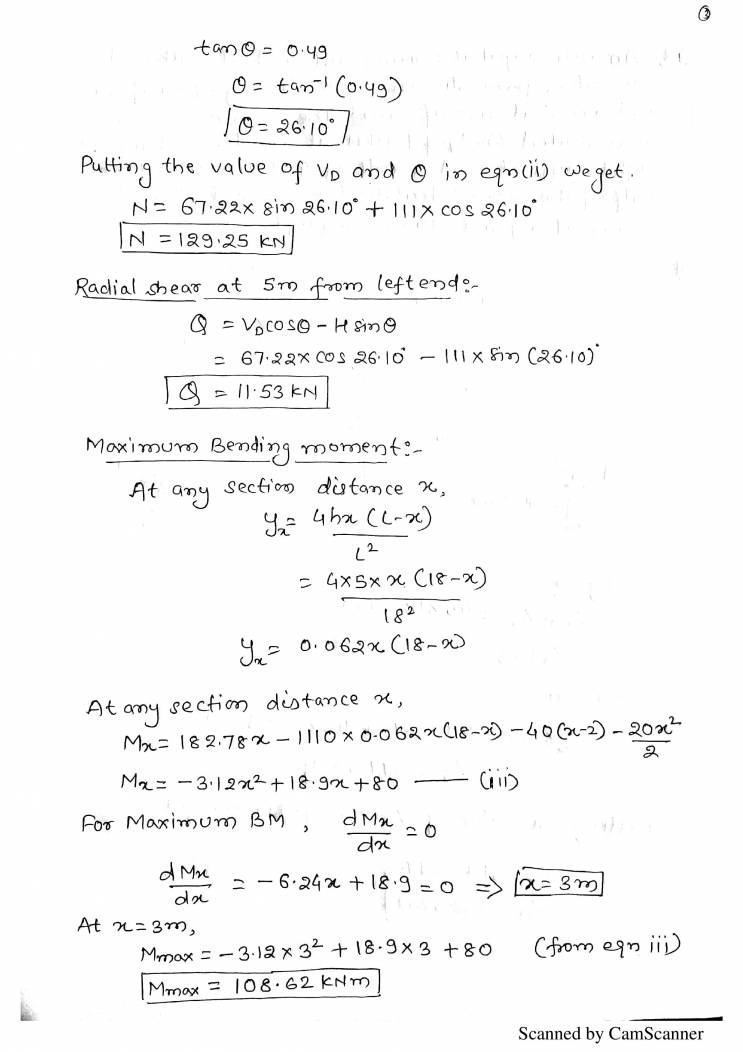 ③
tanθ = 0.49
θ = tan⁻¹ (0.49)
θ = 26.10°
Putting the value of V_D and θ in eqn(ii) we get.
N = 67.22 x sin 26.10° + 111 x cos 26.10°
N = 129.25 KN
Radial shear at 5m from left end:-
Q = V_D cosθ - H sinθ
= 67.22 x cos 26.10° - 111 x sin (26.10)°
Q = 11.53 KN
Maximum Bending moment:-
At any section distance x,
y_x = 4hx (L-x) / L²
= 4x5x x (18-x) / 18²
y_x = 0.062x (18-x)
At any section distance x,
Mx = 182.78x - 1110 x 0.062x(18-x) - 40(x-2) - 20x²/2
Mx = -3.12x² + 18.9x + 80 —— (iii)
For Maximum BM, dMx/dx = 0
dMx/dx = -6.24x + 18.9 = 0 => x = 3m
At x = 3m,
Mmax = -3.12 x 3² + 18.9 x 3 + 80 (from eqn iii)
Mmax = 108.62 KNm
Scanned by CamScanner